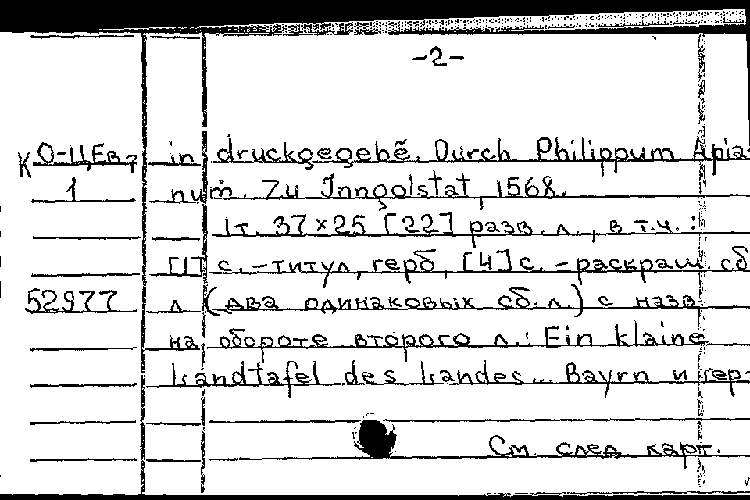 -2-
К О-ЦЕв, in druckgegebē. Durch Philippum Apia-
1 num. Zu Inngolstat, 1568.
1т. 37×25 [22] разв. л., в т.ч.:
[1] с. - титул, герб, [4] с. - раскраш сб
52977 л (два одинаковых сб. л.) с назв
на обороте второго л.: Ein klaine
Landtafel des Landes... Bayrn и гер-
См. след карт.